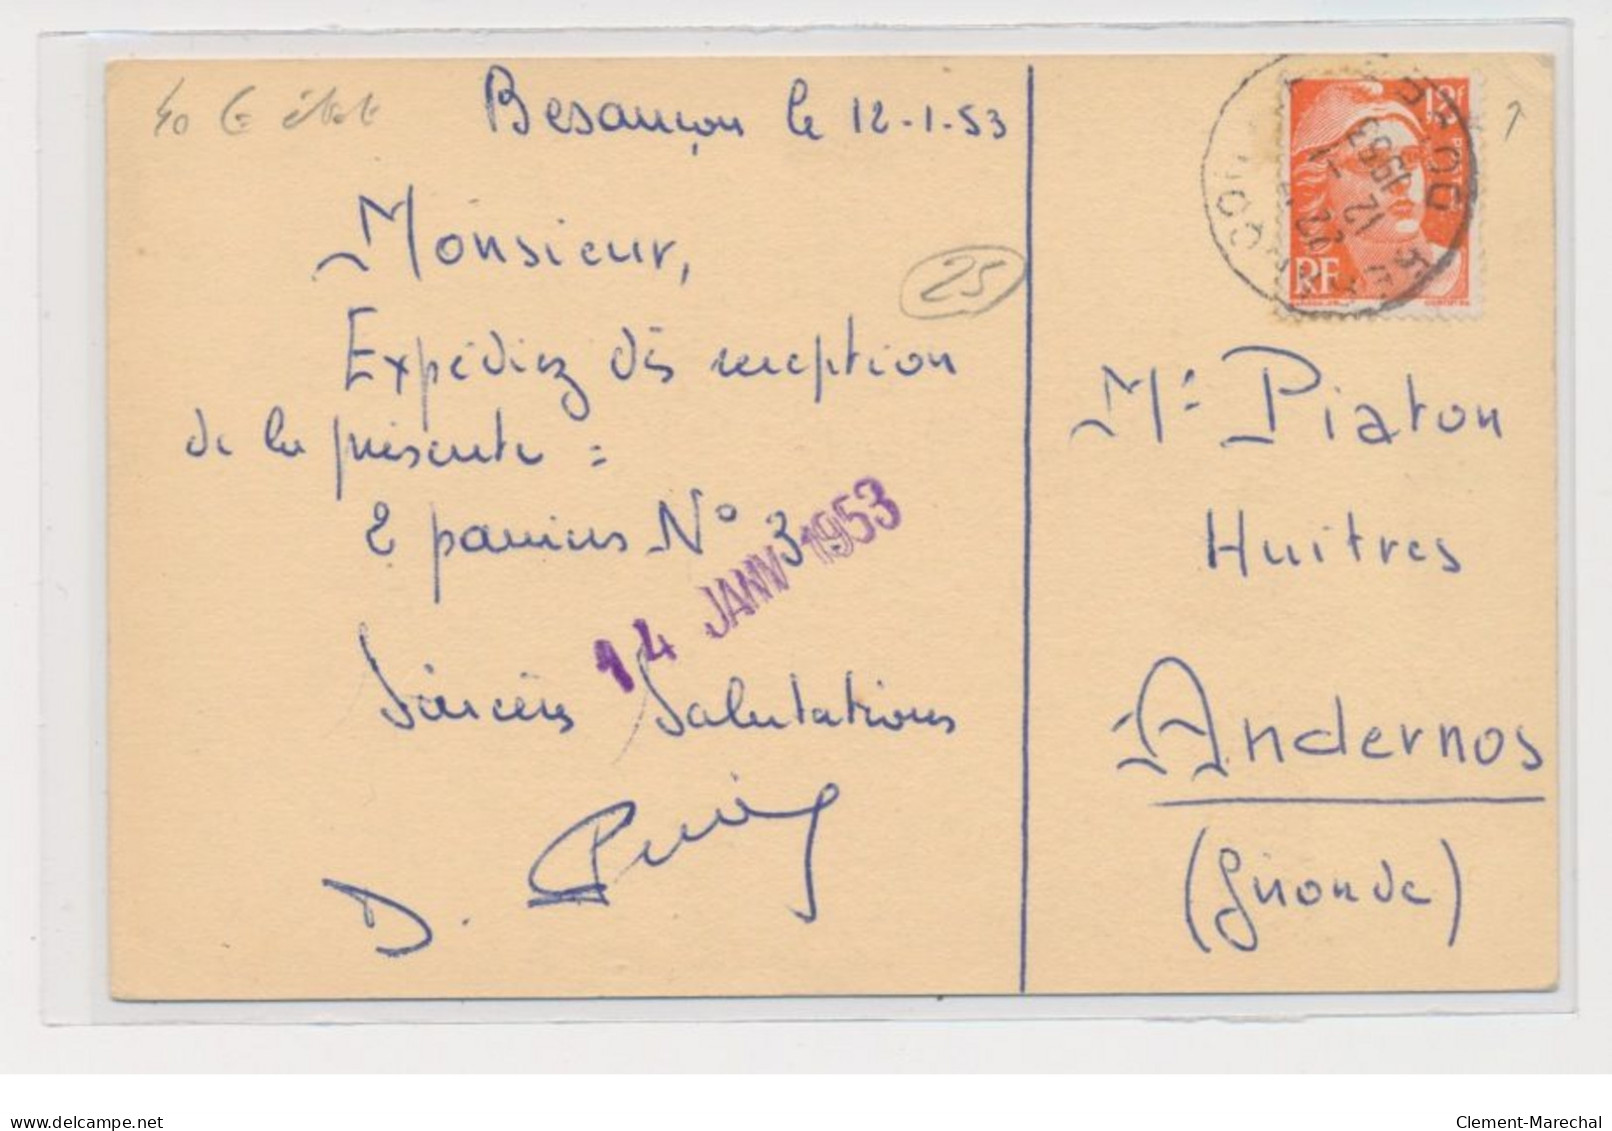 Besançon le 12-1-53
Monsieur,
25
Expédiez dès reception
de la présente :
2 paniers N° 3
14 JANV 1953
Sincères Salutations
D.
12f
RF
12
1953
Mr Piaton
Huitres
Andernos
(Gironde)
delcampe.net
Clement-Marechal